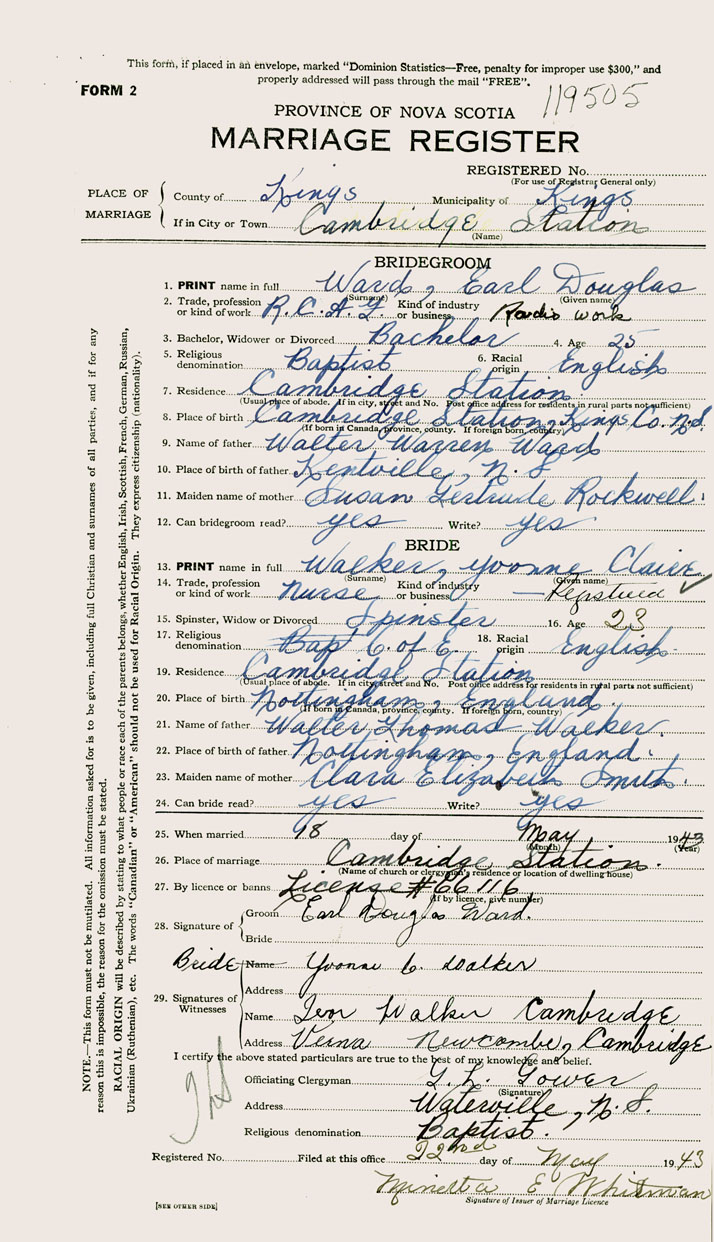 This form, if placed in an envelope, marked “Dominion Statistics—Free, penalty for improper use $300,” and
properly addressed will pass through the mail “FREE”.
FORM 2
119505
PROVINCE OF NOVA SCOTIA
MARRIAGE REGISTER
REGISTERED No.
(For use of Registrar General only)
PLACE OF MARRIAGE
County of Kings Municipality of Kings
If in City or Town Cambridge Station
(Name)
BRIDEGROOM
1. PRINT name in full Ward, Earl Douglas
(Surname) (Given name)
2. Trade, profession or kind of work R.C.A.F. Kind of industry or business Radio work
3. Bachelor, Widower or Divorced Bachelor 4. Age 25
5. Religious denomination Baptist 6. Racial origin English
7. Residence Cambridge Station
(Usual place of abode. If in city, street and No. Post office address for residents in rural parts not sufficient)
8. Place of birth Cambridge Station, Kings Co. N.S.
(If born in Canada, province, county. If foreign born, country)
9. Name of father Walter Warren Ward
10. Place of birth of father Kentville, N. S
11. Maiden name of mother Susan Gertrude Rockwell.
12. Can bridegroom read? yes Write? yes
BRIDE
13. PRINT name in full Walker, Yvonne Claire
(Surname) (Given name)
14. Trade, profession or kind of work Nurse Kind of industry or business — Registered
15. Spinster, Widow or Divorced Spinster 16. Age 23
17. Religious denomination Bap C. of E. 18. Racial origin English
19. Residence Cambridge Station
(Usual place of abode. If in city, street and No. Post office address for residents in rural parts not sufficient)
20. Place of birth Nottingham, England.
(If born in Canada, province, county. If foreign born, country)
21. Name of father Walter Thomas Walker.
22. Place of birth of father Nottingham, England.
23. Maiden name of mother Clara Elizabeth Smith.
24. Can bride read? yes Write? yes
25. When married 18 day of May 1943
(Month) (Year)
26. Place of marriage Cambridge Station.
(Name of church or clergyman's residence or location of dwelling house)
27. By licence or banns License #66116
(If by licence, give number)
28. Signature of
Groom Earl Douglas Ward.
Bride
Bride Name Yvonne C. Walker
Address
29. Signatures of Witnesses
Name Ivor Walker Cambridge
Address Verna Newcombe, Cambridge
I certify the above stated particulars are true to the best of my knowledge and belief.
Officiating Clergyman G. L. Gower
(Signature)
Address Waterville, N.S.
Religious denomination Baptist.
Registered No. Filed at this office 22nd day of May 1943
E Whitman
Signature of Issuer of Marriage Licence
[SEE OTHER SIDE]
NOTE.—This form must not be mutilated. All information asked for is to be given, including full Christian and surnames of all parties, and if for any
reason this is impossible, the reason for the omission must be stated.
RACIAL ORIGIN will be described by stating to what people or race each of the parents belongs, whether English, Irish, Scottish, French, German, Russian,
Ukrainian (Ruthenian), etc. The words “Canadian” or “American” should not be used for Racial Origin. They express citizenship (nationality).